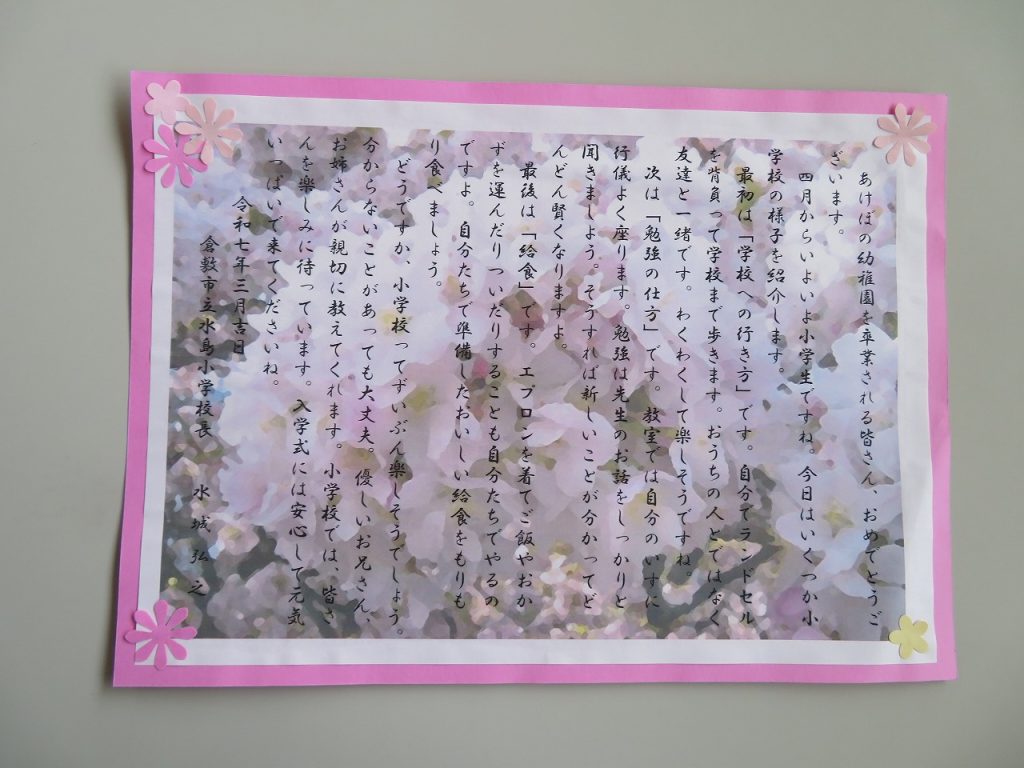 あけぼの幼稚園を卒業される皆さん、おめでとうご
ざいます。
四月からいよいよ小学生ですね。今日はいくつか小
学校の様子を紹介します。
最初は「学校への行き方」です。自分でランドセル
を背負って学校まで歩きます。おうちの人とではなく
友達と一緒です。わくわくして楽しそうですね。
次は「勉強の仕方」です。教室では自分のいすに
行儀よく座ります。勉強は先生のお話をしっかりと
聞きましょう。そうすれば新しいことが分かってど
んどん賢くなりますよ。
最後は「給食」です。エプロンを着てご飯やおか
ずを運んだりついだりすることも自分たちでやるの
ですよ。自分たちで準備したおいしい給食をもりも
り食べましょう。
どうですか、小学校ってずいぶん楽しそうでしょう。
分からないことがあっても大丈夫。優しいお兄さん、
お姉さんが親切に教えてくれます。小学校では、皆さ
んを楽しみに待っています。入学式には安心して元気
いっぱいで来てくださいね。
令和七年三月吉日
倉敷市立水島小学校長 水城弘之